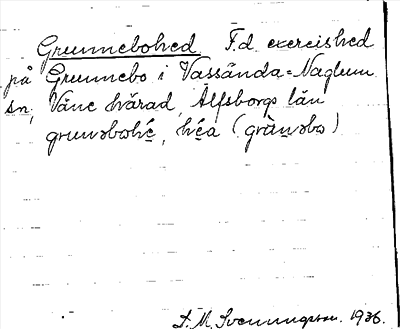 Grunnebohed F.d. exercished
på Grunnebo i Vassända-Naglum
sn, Väne härad, Älfsborgs län
grunəbohé, héa (grànəbo)
S. M. Svenningsson. 1936.